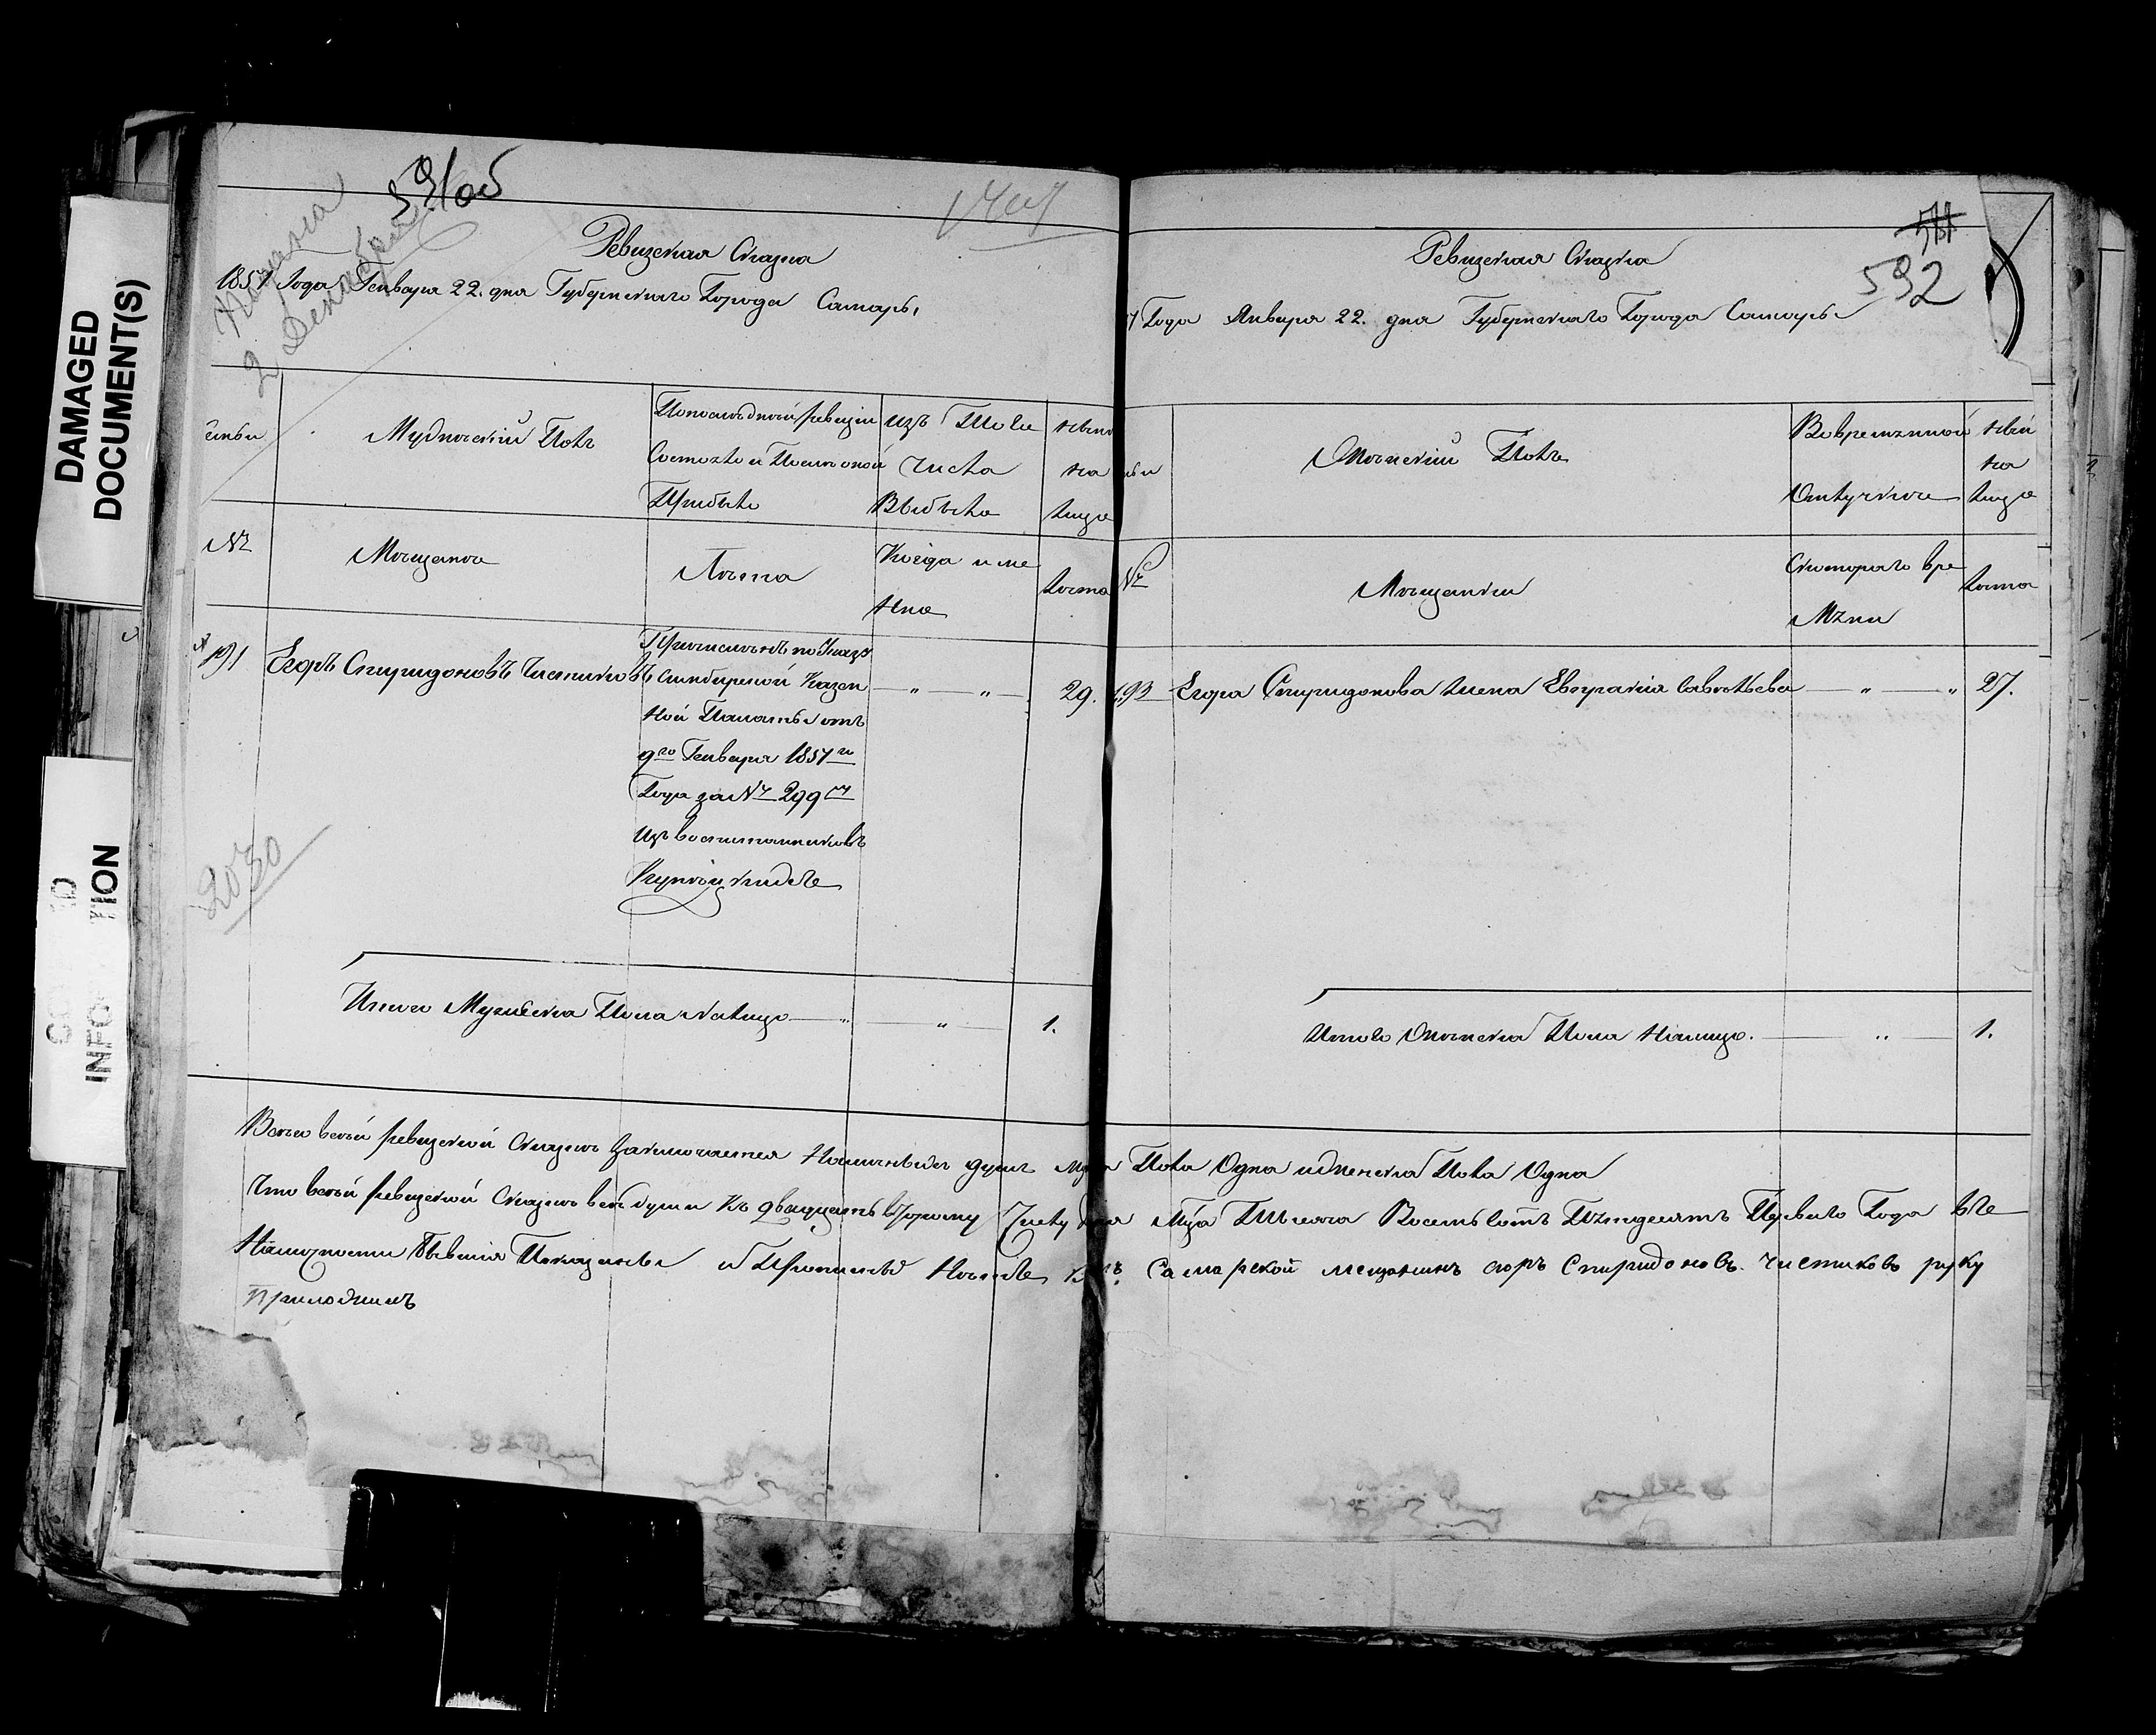 DAMAGED
DOCUMENT(S)
INFO TION
591об
2 Декабря
Ревизская Сказка
1851 Года Генваря 22. дня Губернскаго Города Самары
Мужеский Полъ
По последней ревизіи
Состояло и После оной
Прибыло
изъ Того
числа
Выбыло
ныне
на
лицо
№
Мещане
Лета
Когда име
нно
лета
191
Егоръ Спиридоновъ Чистиковъ
Причисленъ по Указу
Симбирской Казен
ной Палаты отъ
9го Генваря 1851го
Года за № 299м
Изъ воспитанниковъ
— " — " —
29.
2030
Итого Мужеска Пола на лицо — " — " — 1.
Ревизская Сказка
592
Года Января 22. дня Губернскаго Города Самары
Женский Полъ
Во временной
Отлучке
ныне
на
лицо
№
Мещанки
С котораго вре
мени
лета
193
Егора Спиридонова жена Евграфия Савельева — " — " 27.
Итого Женска Пола на лицо. — " — 1.
Всего въ сей ревизской сказке заключается наличныхъ душъ муска Пола Одна и женска Пола Одна
Что въ сей ревизской сказке все души къ двадцать второму Числу Тысяча Восемьсотъ Пятьдесятъ Перваго Года въ
наличности Показаны и Прописныхъ нетъ Самарской мещанинъ егоръ Спиридоновъ. Чистиковъ руку
приложилъ